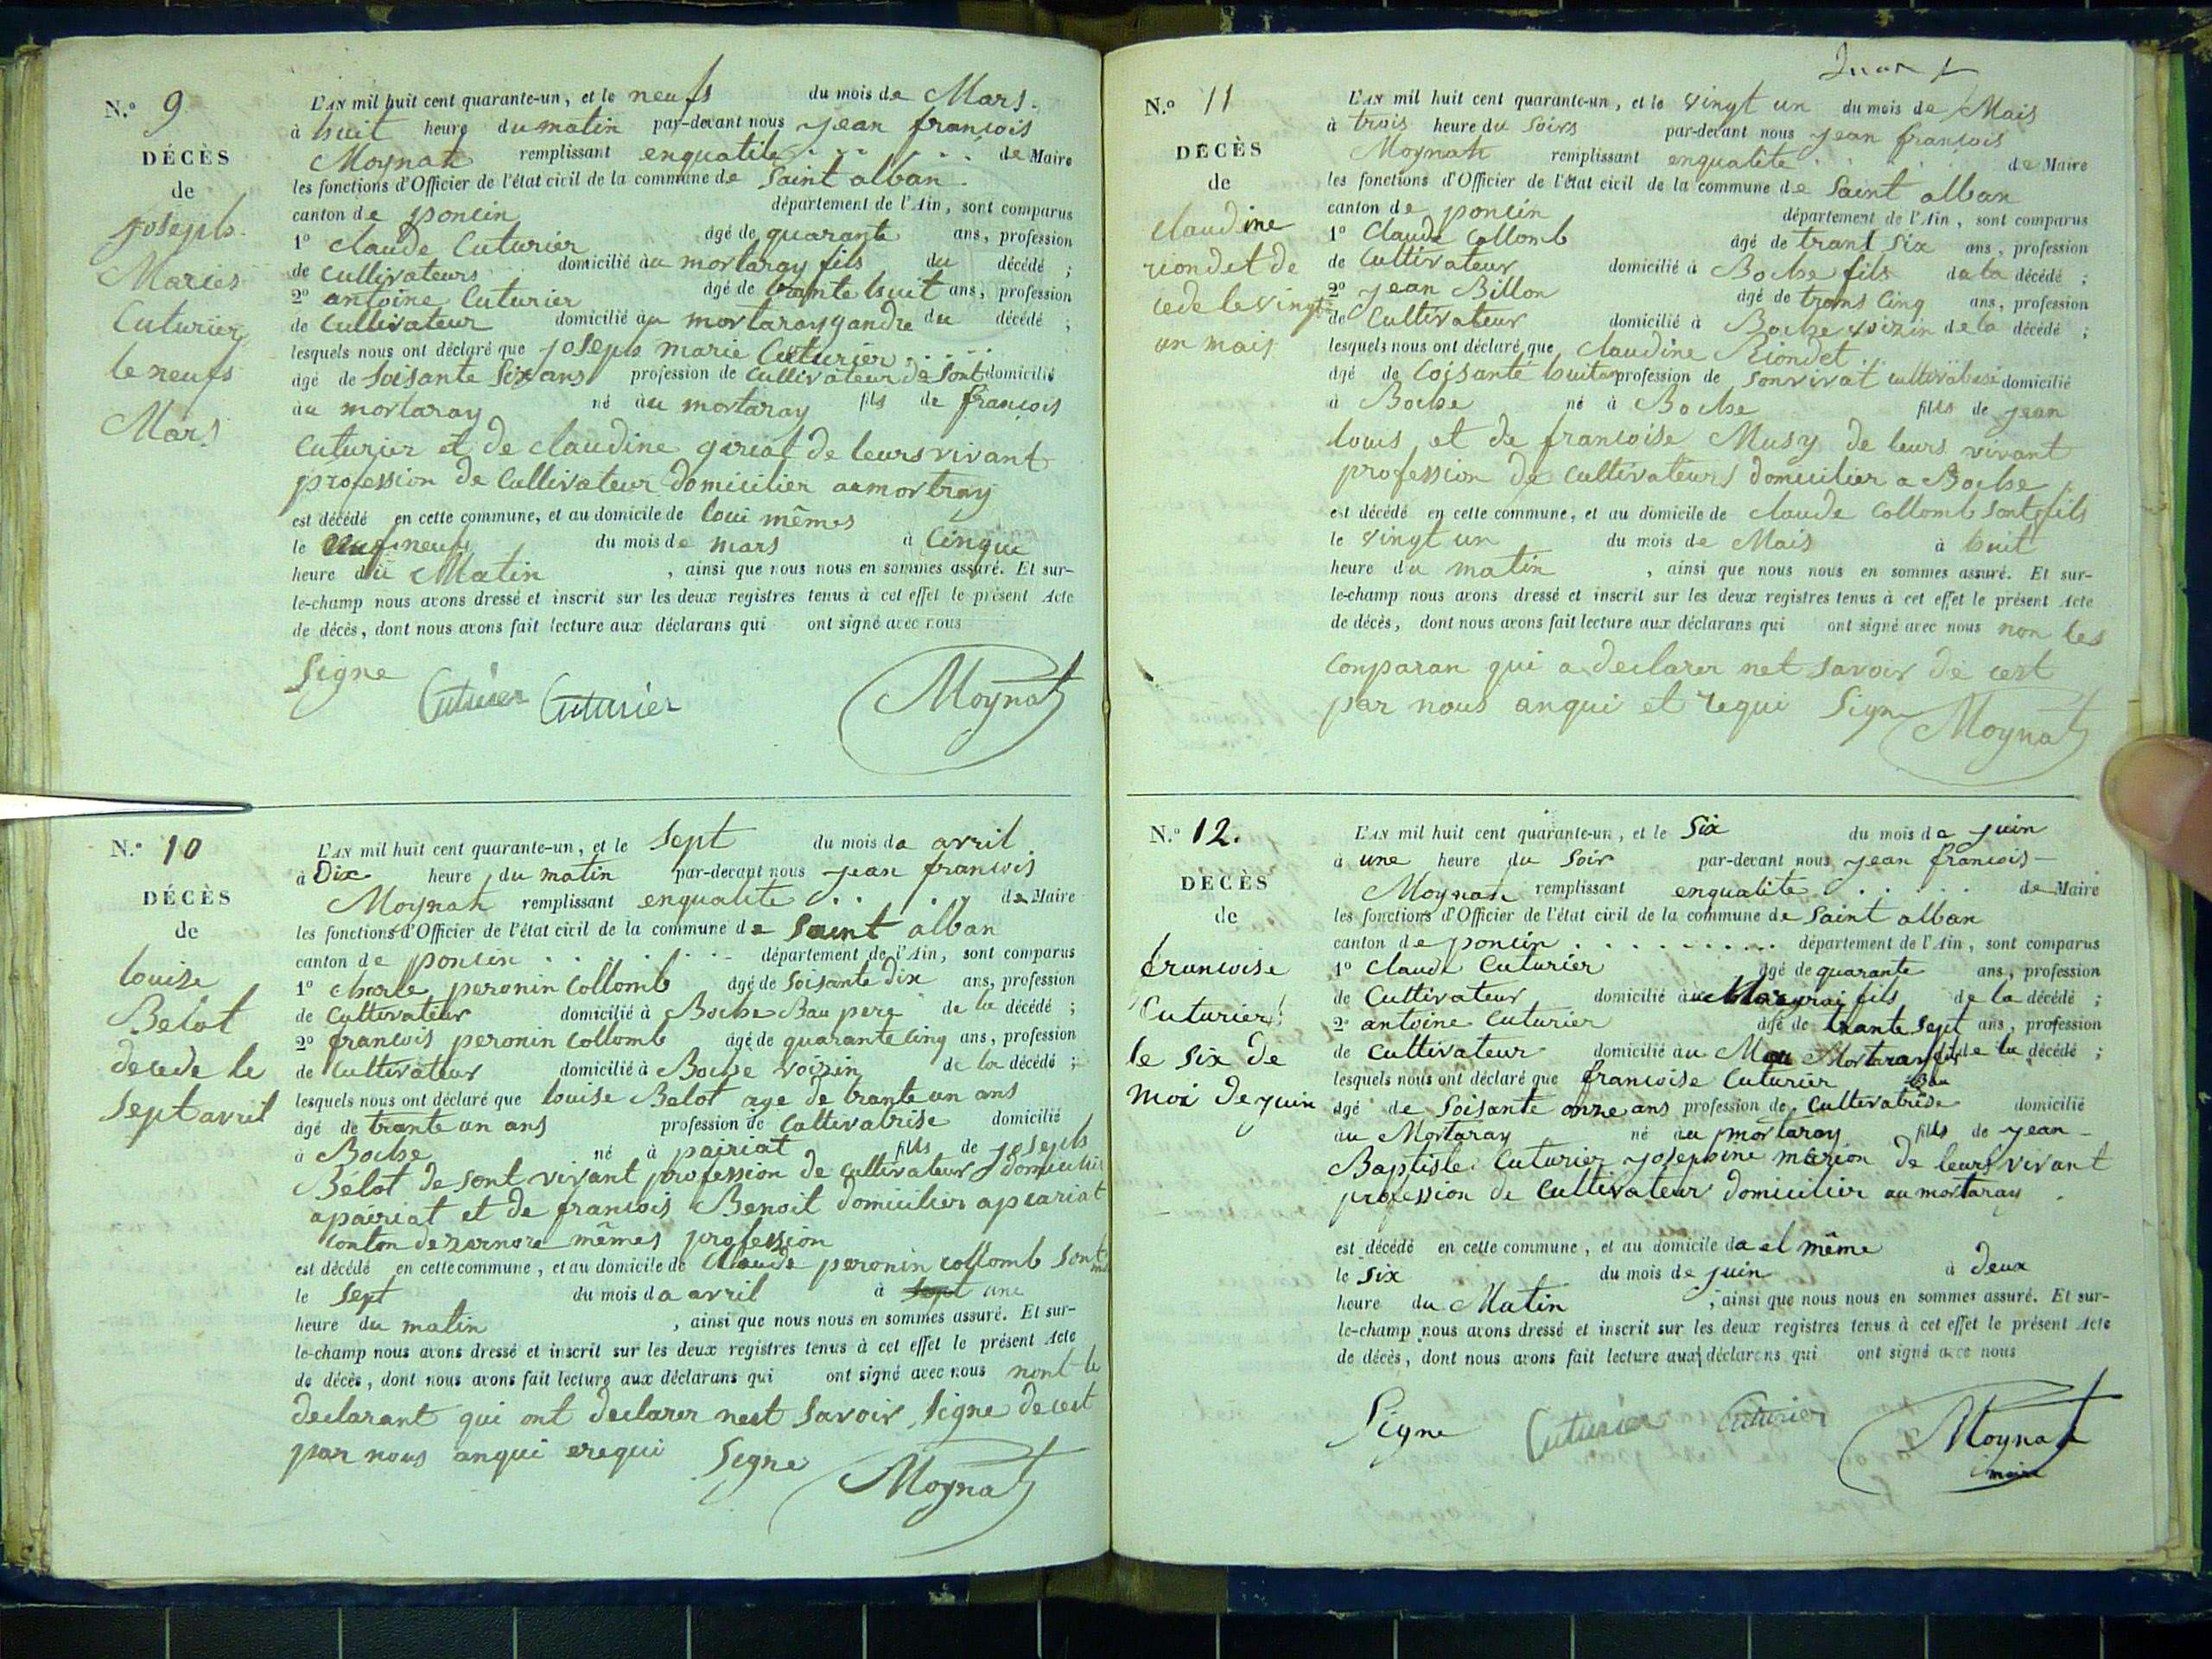 N.° 9
DÉCÈS
de
joseph
Maries
Cuturier
le neufs
Mars
L'AN mil huit cent quarante-un, et le neufs du mois de Mars.
à huit heure du matin par-devant nous jean françois
Moynat remplissant enqualite . . . . . de Maire
les fonctions d'Officier de l'état civil de la commune de Saint alban
canton de poncin département de l'Ain, sont comparus
1° claude Cuturier âgé de quarante ans, profession
de cultivateurs domicilié au mortaray fils du décédé ;
2° antoine Cuturier âgé de trante huit ans, profession
de Cultivateur domicilié au mortaray gandre du décédé ;
lesquels nous ont déclaré que joseph marie Cuturier . . . .
âgé de Soisante Six ans profession de Cultivateur de Sont domicilié
au mortaray né au mortaray fils de françois
Cuturier et de claudine giriat de leurs vivant
profession de Cultivateur domicilier au mortray
est décédé en cette commune, et au domicile de loui mêmes
le neufs du mois de mars à Cinque
heure du Matin , ainsi que nous nous en sommes assuré. Et sur-
le-champ nous avons dressé et inscrit sur les deux registres tenus à cet effet le présent Acte
de décès, dont nous avons fait lecture aux déclarans qui ont signé avec nous
Signe Cuturier Cuturier Moynat
N.° 10
DÉCÈS
de
louise
Belot
decede le
Sept avril
L'AN mil huit cent quarante-un, et le Sept du mois da avril
à Dix heure du matin par-devant nous jean francois
Moynat remplissant enqualite . . . . de Maire
les fonctions d'Officier de l'état civil de la commune de Saint alban
canton de poncin . . . . . département de l'Ain, sont comparus
1° charle peronin Collomb âgé de Soisante Dix ans, profession
de Cultivateur domicilié à Boche Bau pere de la décédé ;
2° francois peronin Collomb âgé de quarante Cinq ans, profession
de Cultivateur domicilié à Boche voizin de la décédé ;
lesquels nous ont déclaré que louise Belot age de trante un ans
âgé de trante un ans profession de Cultivatrise domicilié
à Boche né à pairiat fills de joseph
Bélot de sont vivant profession de Cultivateur domicilier
apairiat et de francois Benoit domicilier apeariat
Conton dezernore mêmes profession
est décédé en cette commune, et au domicile de Claude peronin collomb Sont
le Sept du mois da avril à Sept une
heure du matin , ainsi que nous nous en sommes assuré. Et sur-
le-champ nous avons dressé et inscrit sur les deux registres tenus à cet effet le présent Acte
de décès, dont nous avons fait lecture aux déclarans qui ont signé avec nous nont le
declarant qui ont declarer nest Savoir Signe de cest
par nous anqui erequi Signe Moynat
N.° 11
DÉCÈS
de
Claudine
riondet de
cede le vingt
un mais
L'AN mil huit cent quarante-un, et le vingt un du mois de Mais
à trois heure du Soirs par-devant nous jean francois
Moynat remplissant enqualite . . . . de Maire
les fonctions d'Officier de l'état civil de la commune de Saint alban
canton de poncin département de l'Ain, sont comparus
1° Claude Collomb âgé de trant Six ans, profession
de Cultivateur domicilié à Boche fils da la décédé ;
2° jean Billon âgé de trans Cinq ans, profession
de Cultivateur domicilié à Boche voizin de la décédé ;
lesquels nous ont déclaré que Claudine Riondet . . .
âgé de Coisante huit ans profession de Sonvivat domicilié
à Boche né à Boche fills de jean
louis et de francoise Musy de leurs vivant
profession de Cultivateurs domicilier a Boche
est décédé en cette commune, et au domicile de claude Collomb Sont fils
le vingt un du mois de Mais à huit
heure du matin , ainsi que nous nous en sommes assuré. Et sur-
le-champ nous avons dressé et inscrit sur les deux registres tenus à cet effet le présent Acte
de décès, dont nous avons fait lecture aux déclarans qui ont signé avec nous non les
Conparan qui a declarer net Savoir de cest
par nous anqui et requi Signe Moynat
N.° 12.
DÉCÈS
de
francoise
Cuturier
le Six de
moi de juin
L'AN mil huit cent quarante-un, et le Six du mois de juin
à une heure du Soir par-devant nous jean francois
Moynat remplissant enqualite . . . . de Maire
les fonctions d'Officier de l'état civil de la commune de Saint alban
canton de poncin . . . . . . . . . département de l'Ain, sont comparus
1° Claude Cuturier âgé de quarante ans, profession
de Cultivateur domicilié au fils de la décédé ;
2° antoine Cuturier âgé de trante Sept ans, profession
de Cultivateur domicilié au Mortaray de la décédé ;
lesquels nous ont déclaré que francoise Cuturier
âgé de Soisante onze ans profession de Cultivatrise domicilié
au Mortaray né au mortaray fills de jean
Baptiste Cuturier josephine marion de leurs vivant
profession de Cultivateur domicilier au mortaray
est décédé en cette commune, et au domicile da el même
le Six du mois de juin à Deux
heure du Matin , ainsi que nous nous en sommes assuré. Et sur-
le-champ nous avons dressé et inscrit sur les deux registres tenus à cet effet le présent Acte
de décès, dont nous avons fait lecture aux déclarans qui ont signé avec nous
Signe Cuturier Cuturier Moynat
maire